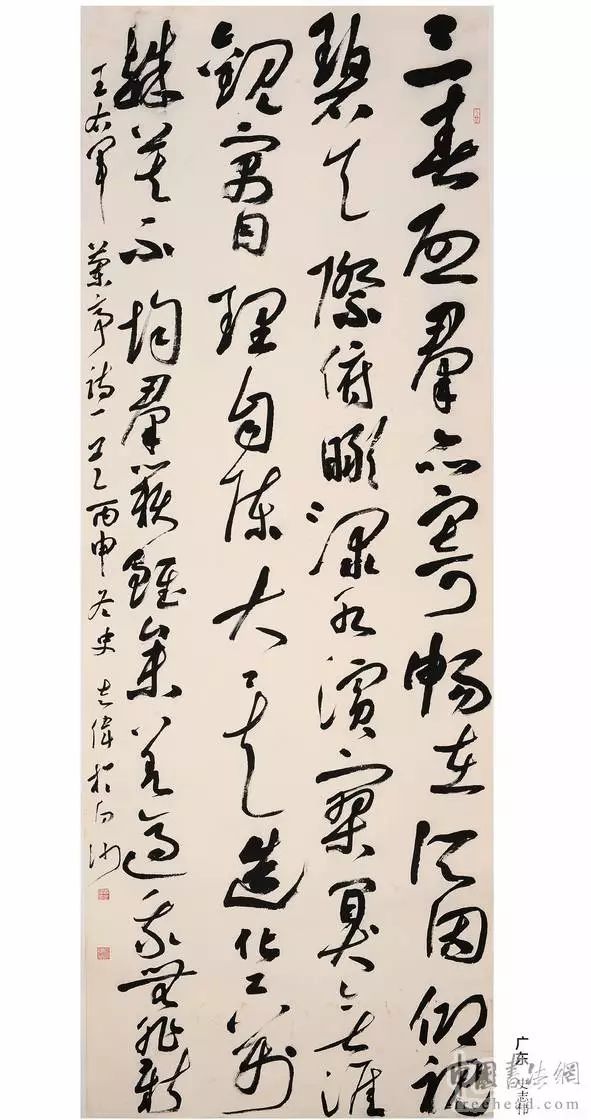 三春啟羣品寄暢在所因仰視
碧天際俯瞰淥水濱寥闃無涯
觀寓目理自陳大矣造化工萬
殊莫不均羣籟雖參差適我無非新
王右軍蘭亭詩一首丙申冬史志偉於白沙
广东 史志伟
中國書法網
freehead.com